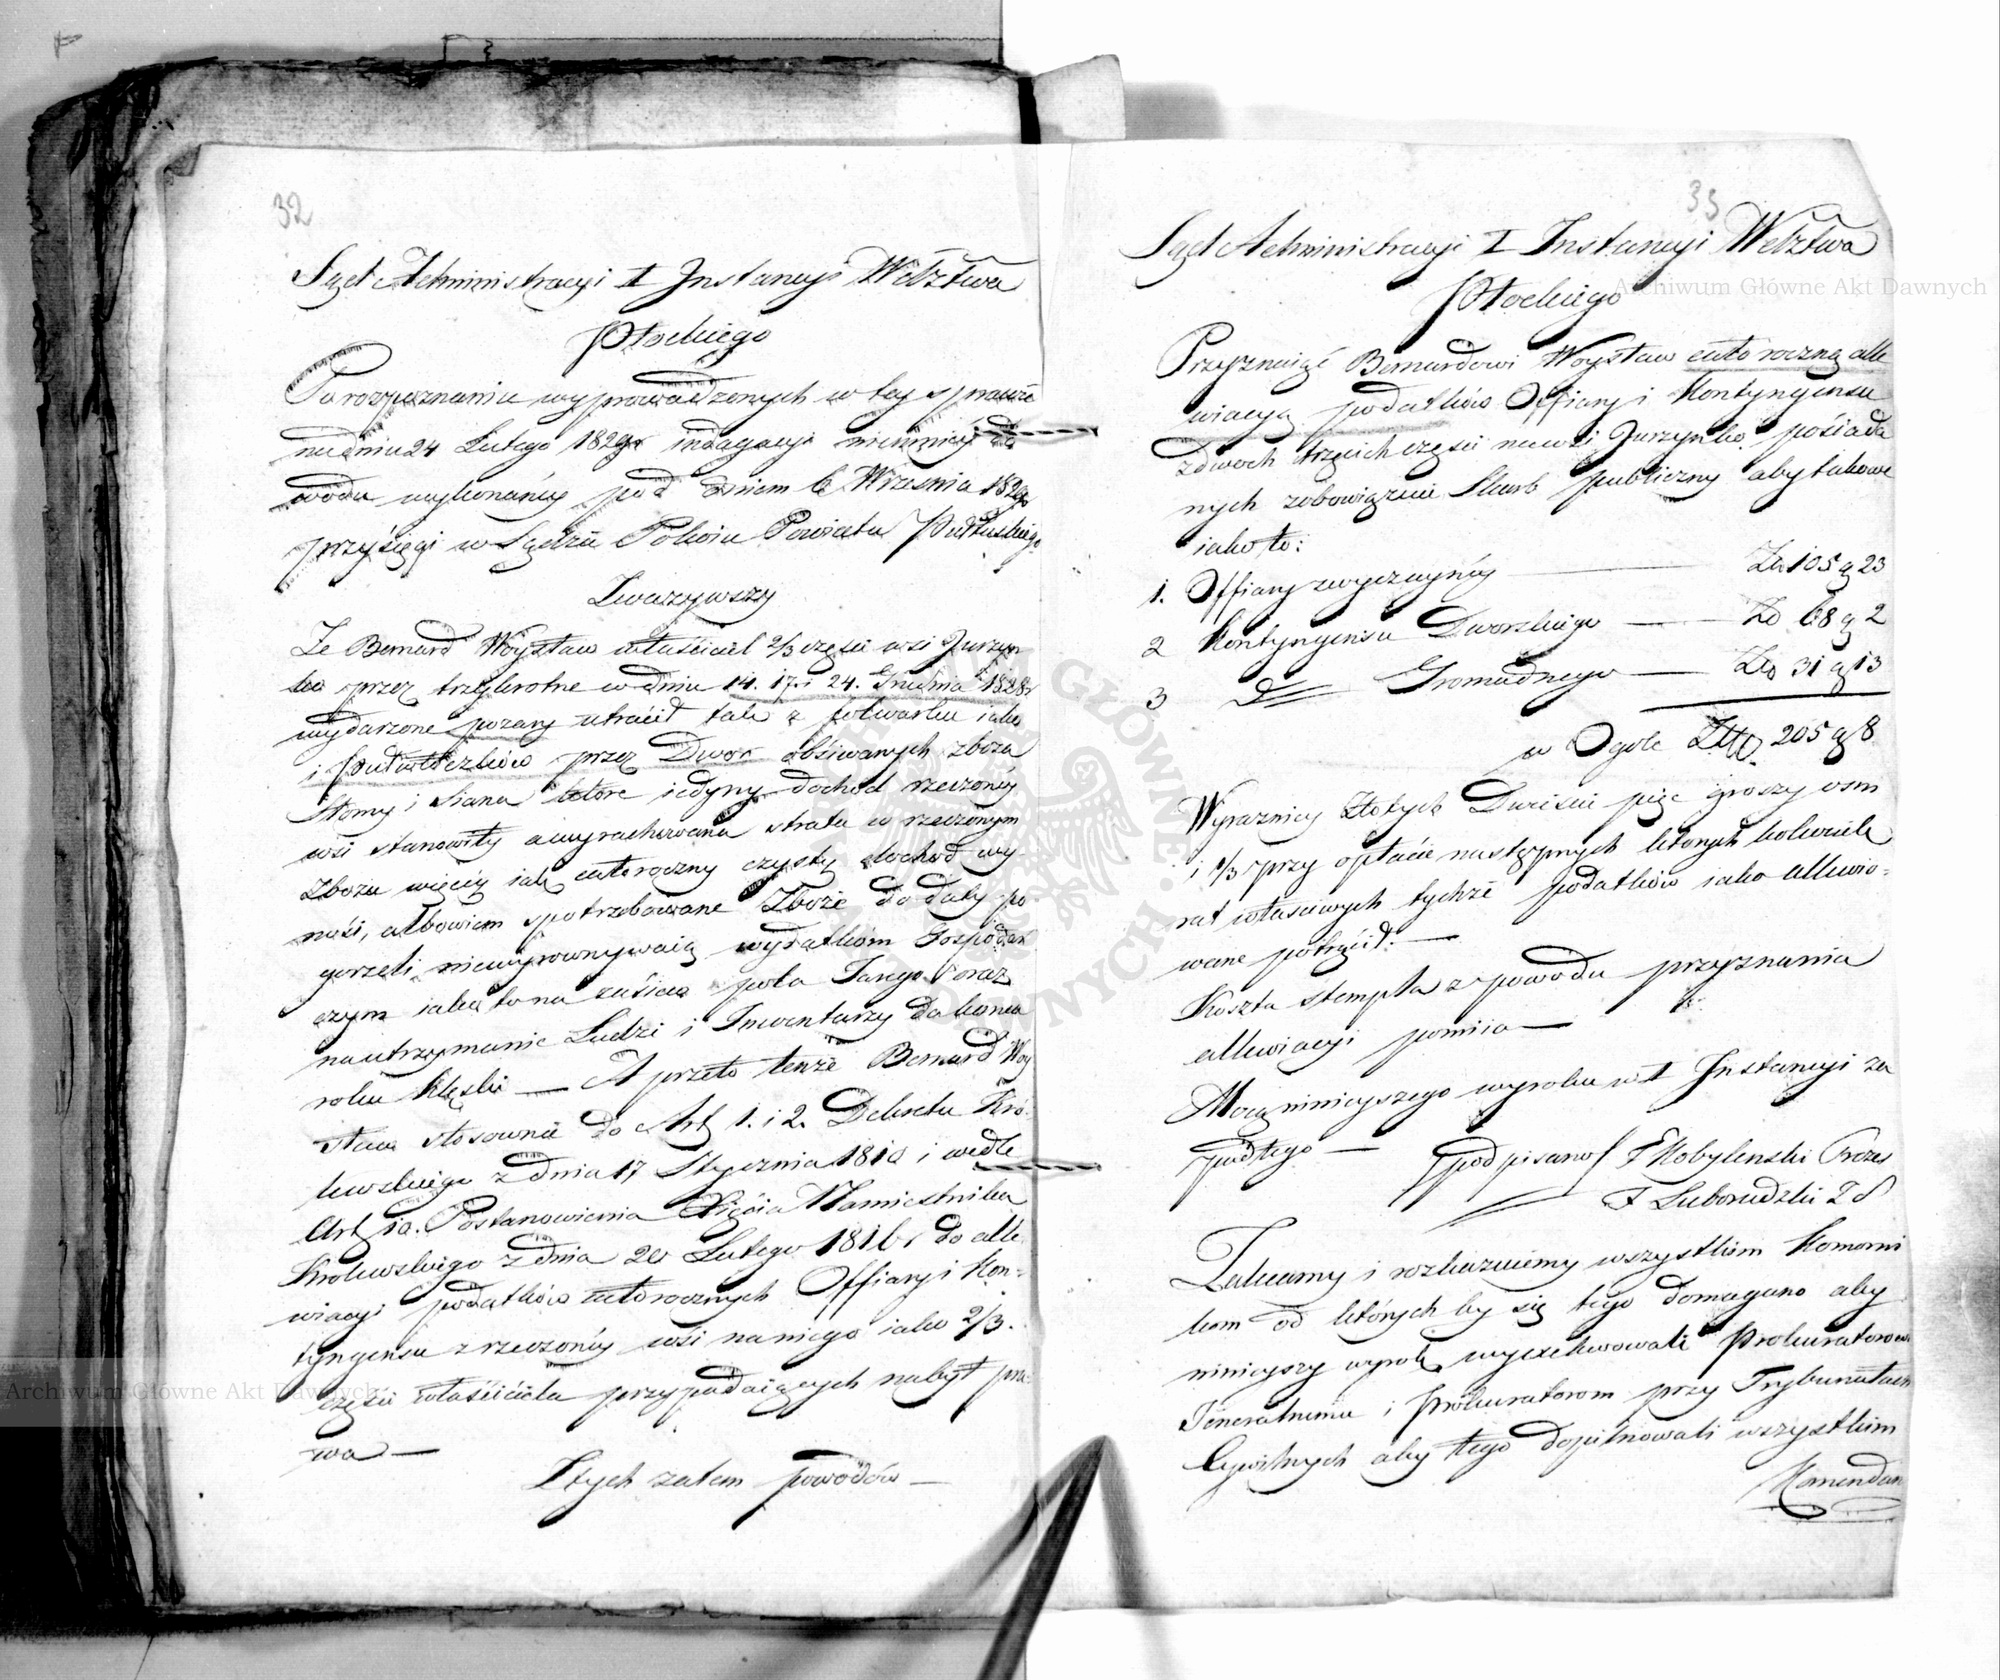 32
Sąd Administracyi I Instancyi Wdztwa
Płockiego
Po rozpoznaniu wyprowadzonych w tey sprawie
na dniu 24 Lutego 1829 r indagacyi niemniey do
wodu wykonaney pod dniem 6 Września 1829
przysięgi w Sądzie Pokoiu Powiatu Pułtuskiego
Zważywszy
Ze Bernard Woysław właściciel 2/3 części wsi Jurzyn
ka przez trzykrotne w dniu 14. 17. i 24. Grudnia 1828 r
wydarzone pozary utracił tak z folwarku iako
i przez Dwor obsiwanych zboza
słomy i siana które iedyny dochod rzeczoney
wsi stanowiły a wyrachowana strata w rzeczonym
Zbożu więcey iak całoroczny czysty dochod wy
nosi, albowiem spotrzebowane Zboże do daty po
gorzeli, niewyrownywaią wydatkom Gospodar
czym iako to na zasiew pola Tanego oraz
na utrzymanie Ludzi i Inwentarzy do konca
roku klęski — A przeto tenże Bernard Woy
sław stosownie do Art 1. i 2. Dekretu Kró
lewskiego z dnia 17 Stycznia 1810 i wedle
Art 10. Postanowienia Xięcia Namiestnika
Krolewskiego z dnia 20 Lutego 1816 r do alle
wiacyi podatków całorocznych Offiary i Kon=
tyngensu z rzeczoney wsi na niego iako 2/3.
części właściciela przypadaiących nabył pra=
wa —
Z tych zatem powodów —
33
Sąd Administracyi I Instancyi Wdztwa
Płockiego
Przyznaiąc Bernardowi Woysław całoroczną alle
wiacyą podatków Offiary i Kontyngensu
z dwoch trzecich części na wsi Jurzynka posiada
nych zobowiązuie Skarb publiczny aby takowe
iako to:
1. Offiary zwyczayney — Zł 105 g 23
2 Kontyngensu Dworskiego — Zł 68 g 2
3 D Gromadnego — Zł 31 g 13
w Ogole Złł 205 g 8
Wyraźniey Złotych Dwieście pięc groszy osm
i 1/3 przy opłacie następnych których kolwiek
rat właściwych tychże podatków iako allewio=
wane potrącił. —
Koszta stempla z powodu przyznania
allewiacyi pomiia —
Mocą ninieyszego wyroku w I Instancyi za
padłego — podpisano / F Kobylenski Prezes
F Luboradzki Z S
Zalecamy i rozkazuiemy wszystkim Komorni
kom od których by się tego domagano aby
ninieyszy wyrok wyexekwowali Prokuratorowi
Generalnemu i Prokuratorom przy Trybunałach
Cywilnych aby tego dopilnowali wszystkim
Komendan
Archiwum Główne Akt Dawnych
Archiwum Główne Akt Dawnych